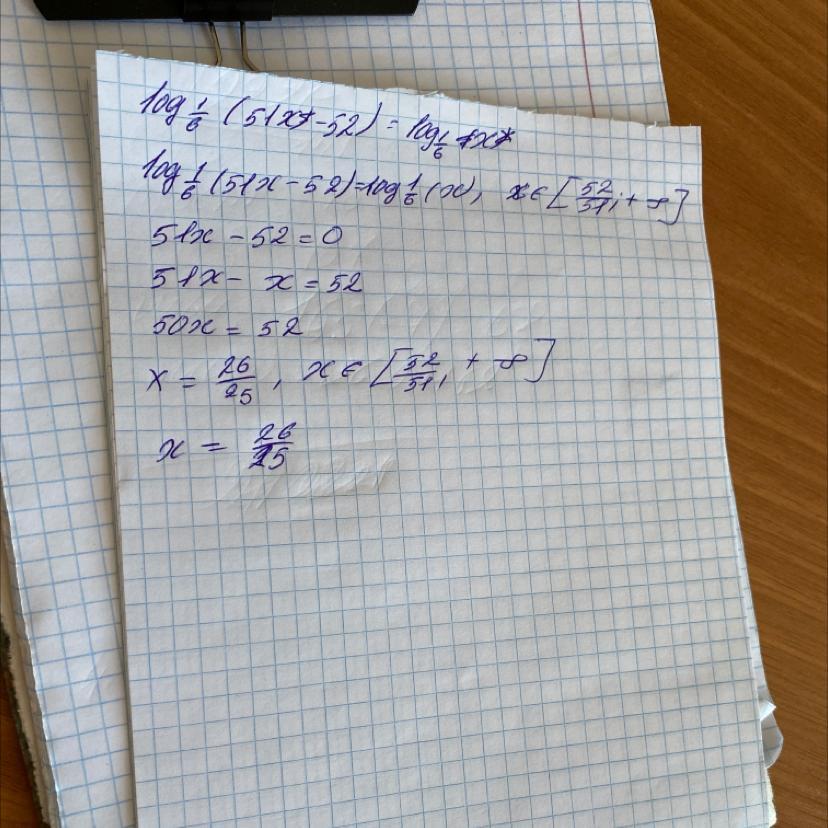 log 1/6 (51x - 52) = log 1/6 x
log 1/6 (51x - 52) = log 1/6 (x), x ∈ [52/51; + ∞]
51x - 52 = 0
51x - x = 52
50x = 52
x = 26/25, x ∈ [52/51; + ∞]
x = 26/25